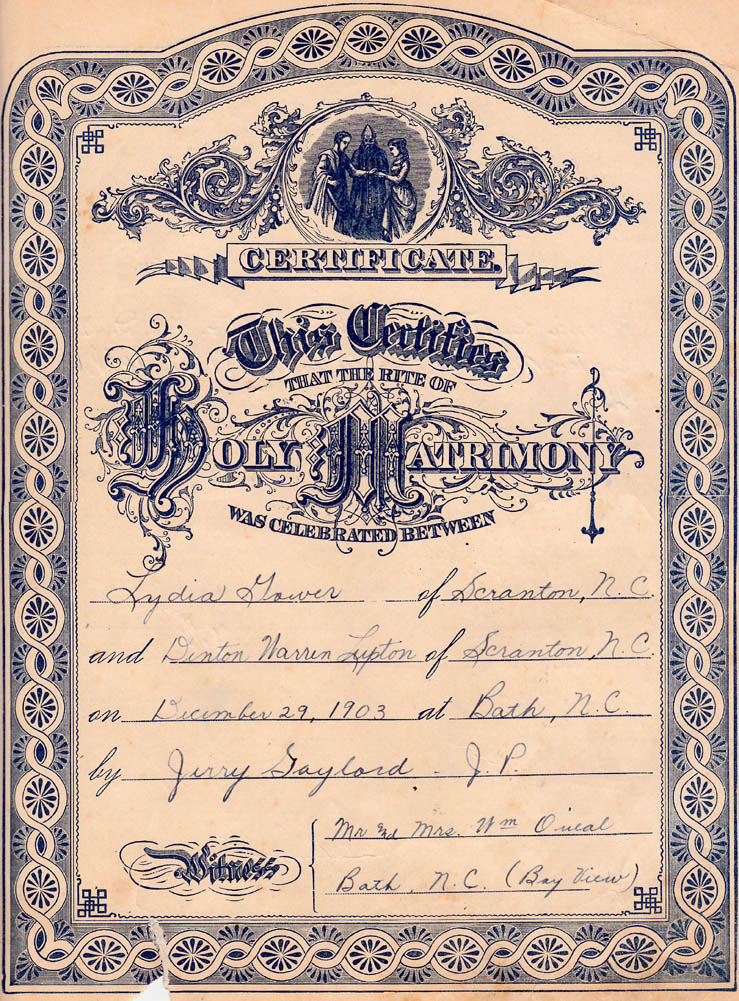 CERTIFICATE.
This Certifies
THAT THE RITE OF
HOLY MATRIMONY
WAS CELEBRATED BETWEEN
Lydia Gower of Scranton, N.C.
and Denton Warren Lupton of Scranton, N.C.
on December 29, 1903 at Bath, N.C.
by Jerry Gaylord - J.P.
Witness
Mr and Mrs. Wm O'neal
Bath, N.C. (Bay View)